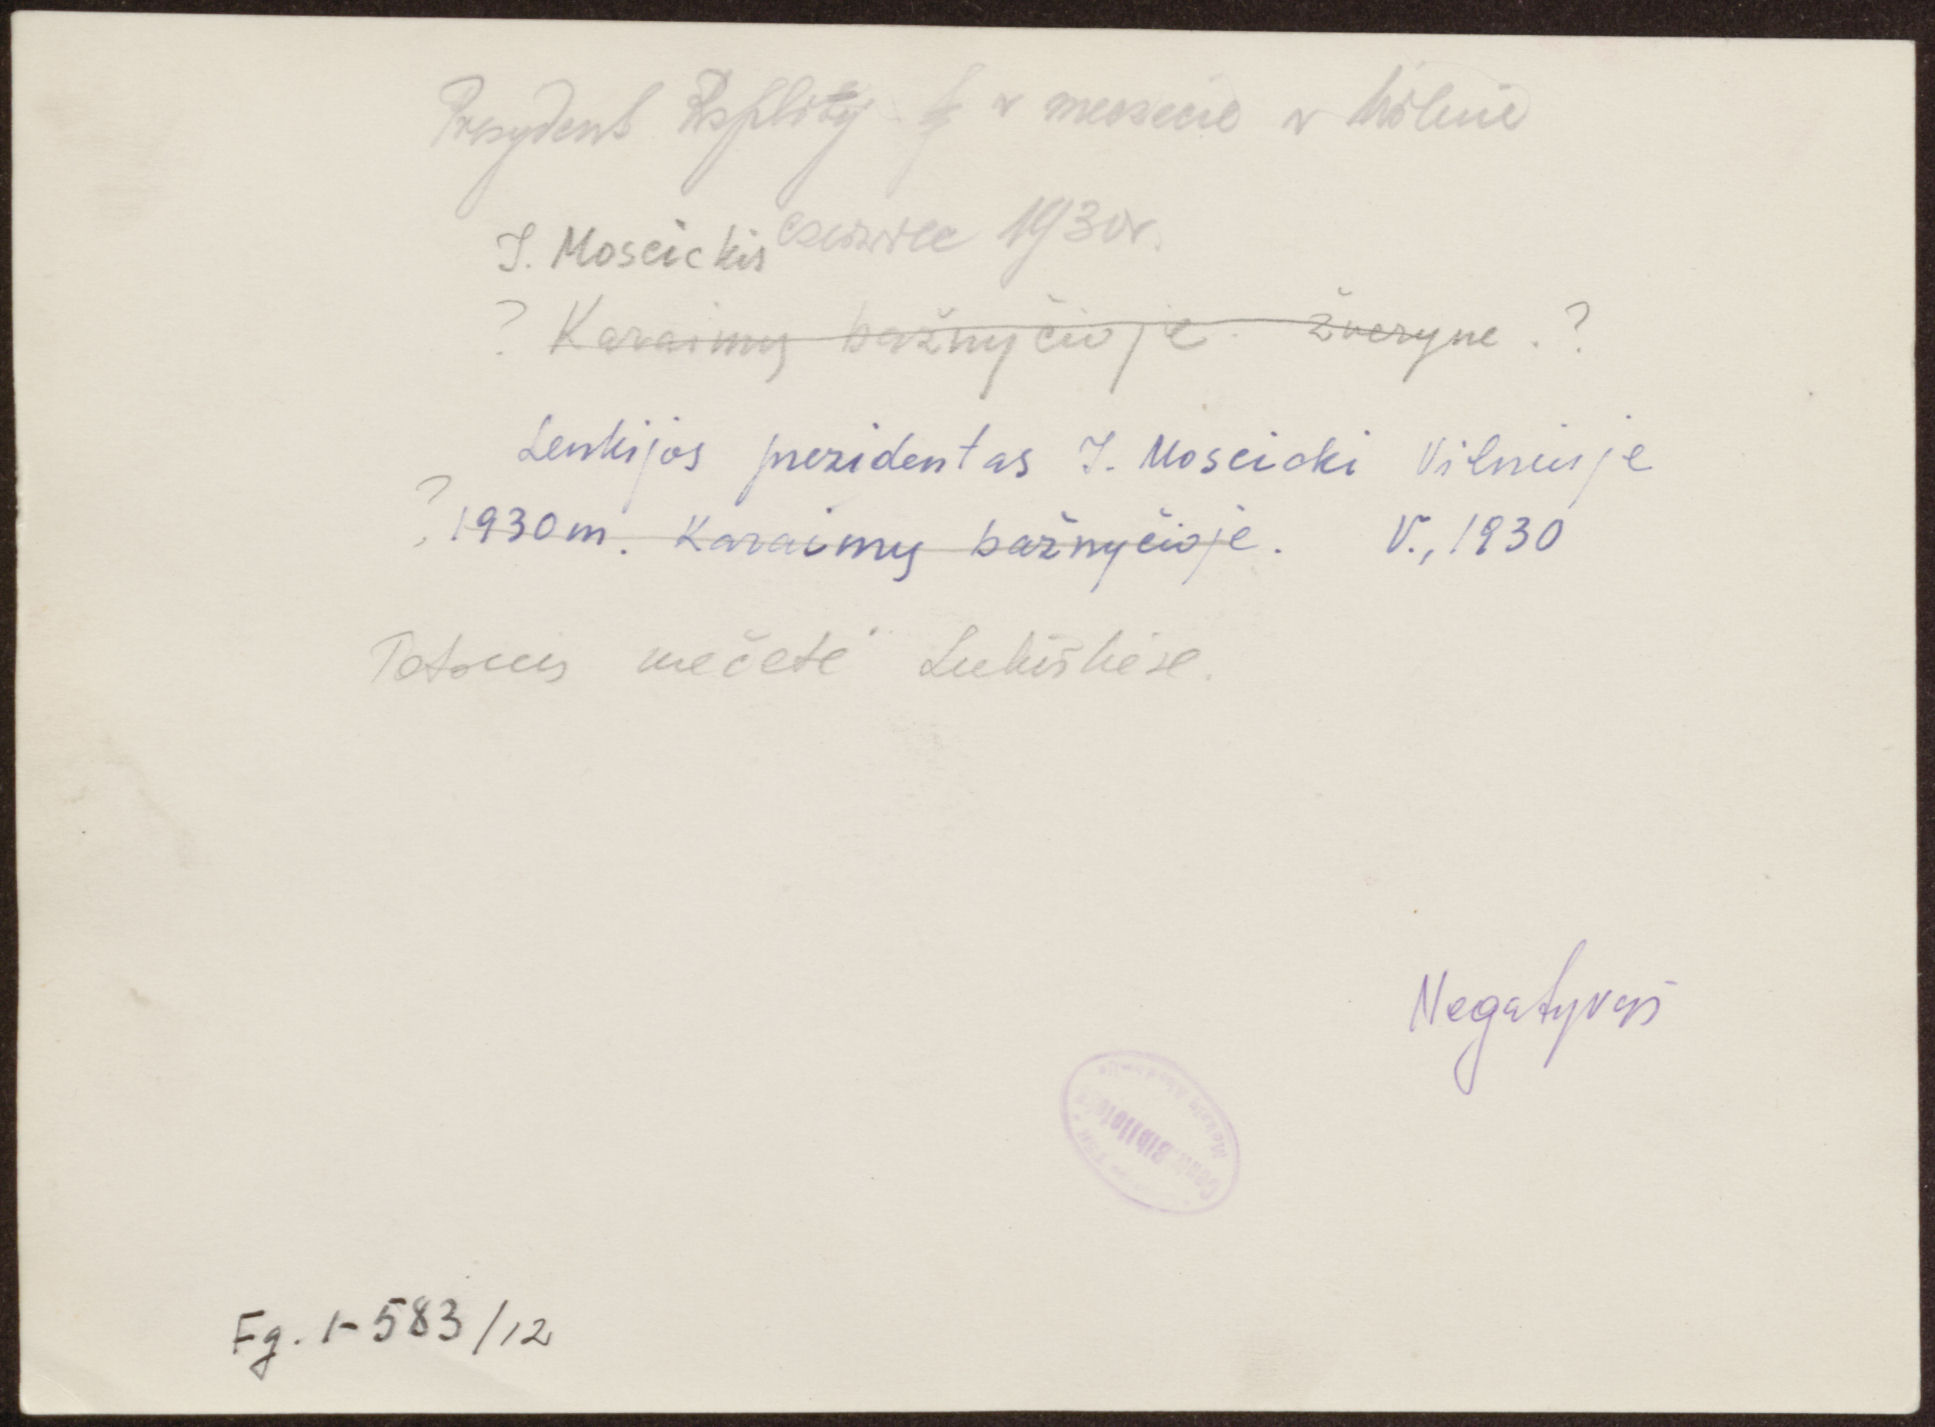 Prezydent Rzplitej w meczecie w Wilnie
czerwiec 1930 r.
I. Moscickis
? Karaimų bažnyčioje Žveryne. ?
Lenkijos prezidentas I. Moscicki Vilniuje
? 1930 m. Karaimų bažnyčioje. V., 1930
Totorių mečetė Lukiškėse.
Negatyvas
Centr. Biblioteka
Mokslų Akademija
Fg. 1-583/12